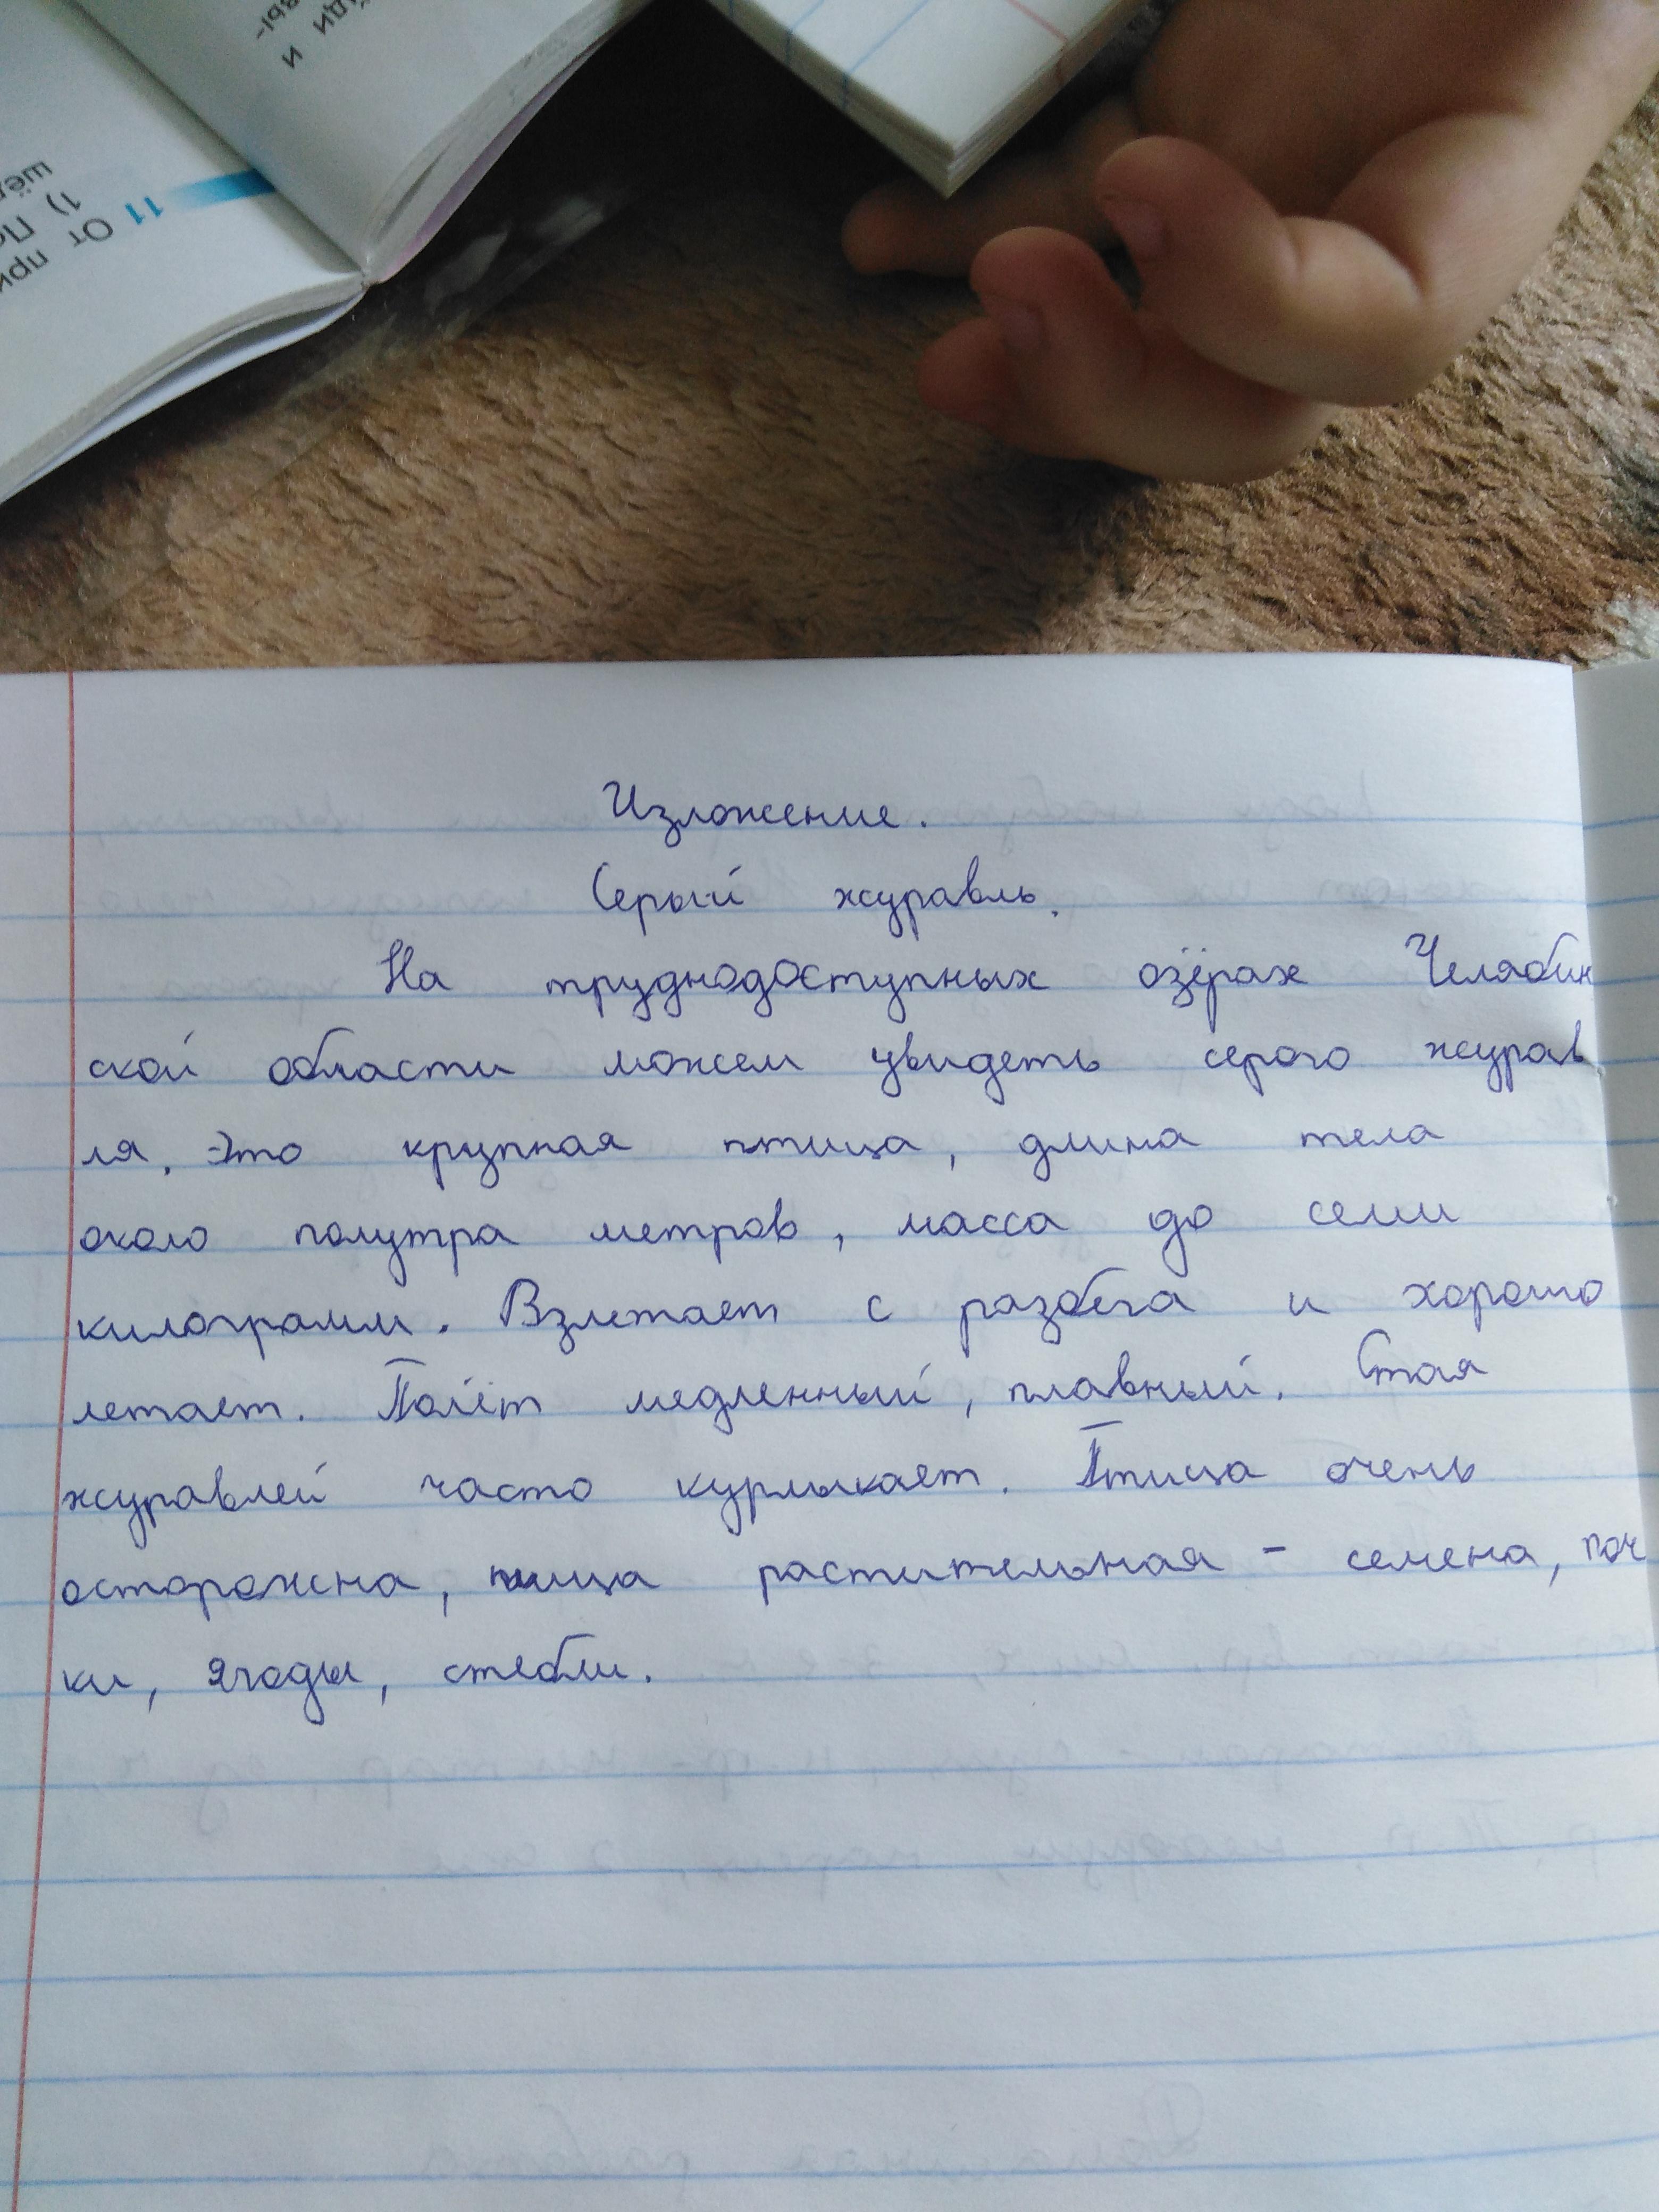 ЫРЫ-
ЙДИ
И
11 От
при
1) По
шёл
Изложение.
Серый журавль.
На труднодоступных озёрах Челябин
ской области можем увидеть серого журав
ля. Это крупная птица, длина тела
около полутра метров, масса до семи
килограмм. Взлетает с разбега и хорошо
летает. Полёт медленный, плавный. Стая
журавлей часто курлыкает. Птица очень
осторожна, пища растительная - семена, поч
ки, ягоды, стебли.